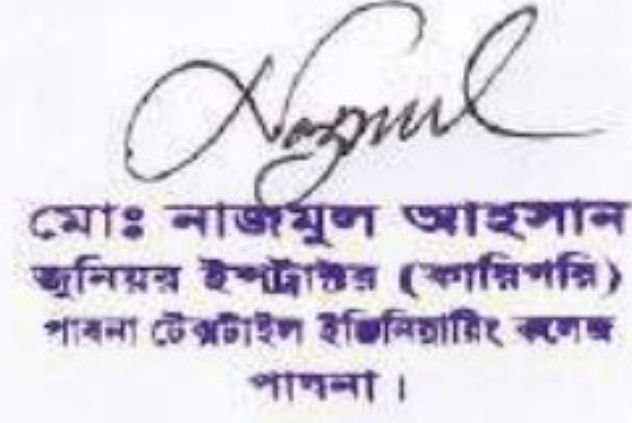 Nazmul
মোঃ নাজমুল আহসান
জুনিয়র ইন্সট্রাক্টর (কারিগরি)
পাবনা টেক্সটাইল ইঞ্জিনিয়ারিং কলেজ
পাবনা।